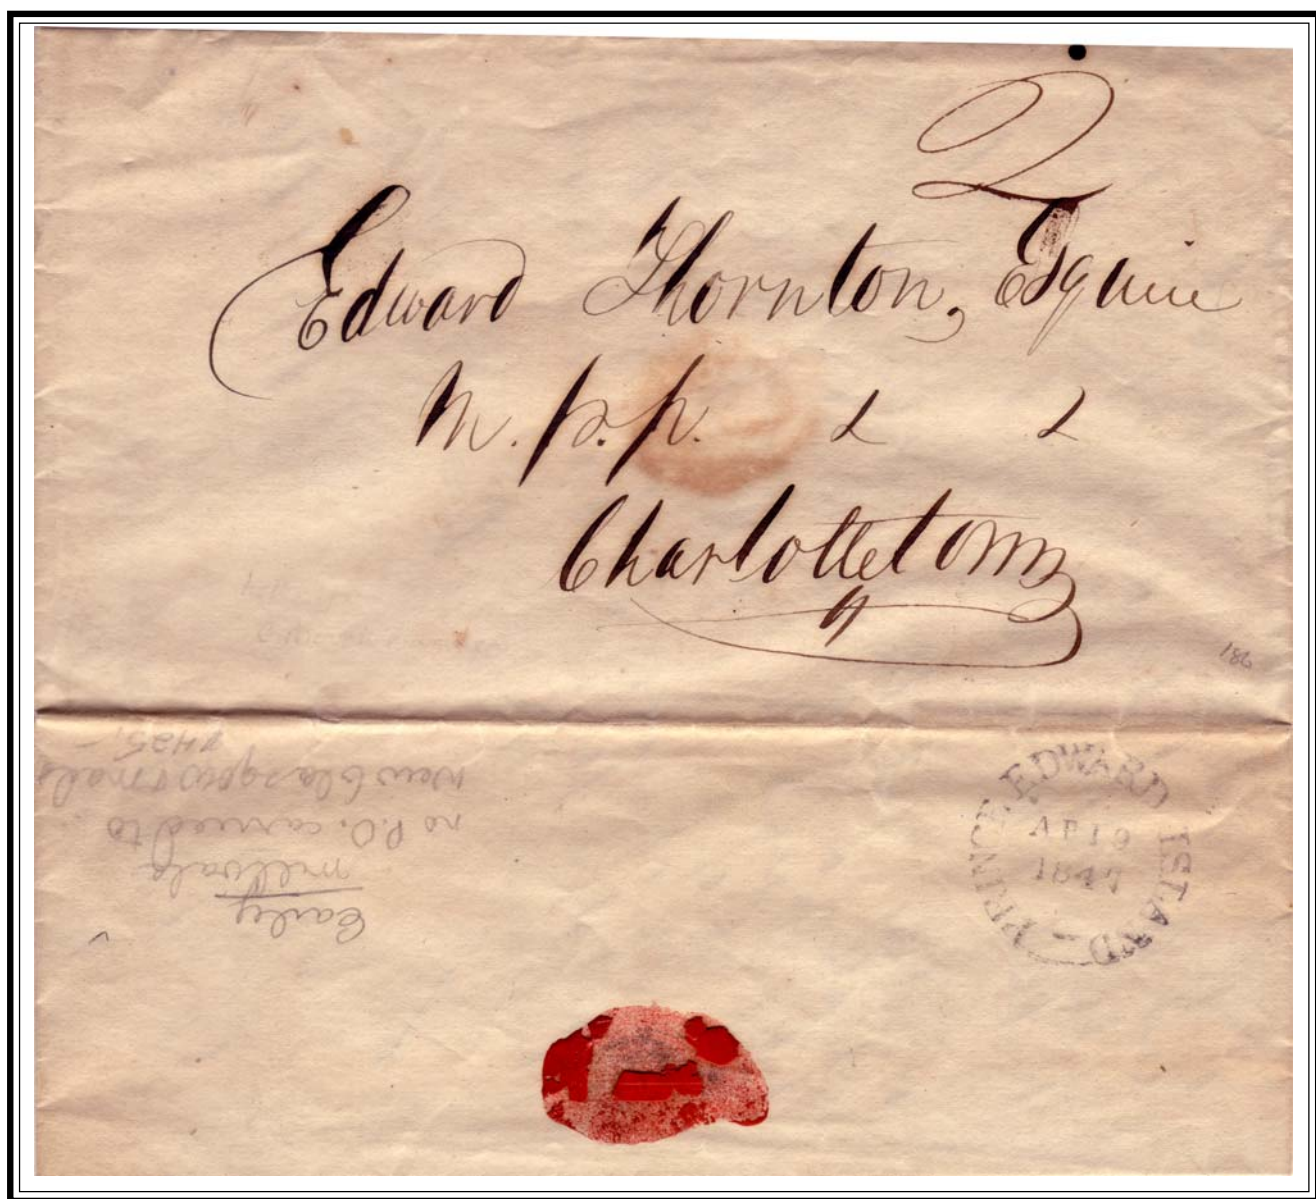 2
Edward Thornton, Esquire
M.P.P. & &
Charlottetown
186
PRINCE EDWARD ISLAND
AP 19
Early
Millvale
no P.O. carried to
New Glasgow & mailed
$425,-